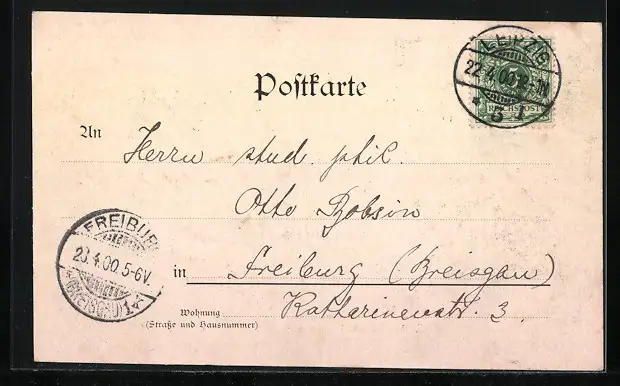 LEIPZIG
22.4.00
REICHSPOST
Postkarte
An
Herrn stud. phil.
Otto Dobsin
FREIBURG
23.4.00 5-6V.
(BREISGAU) 1
in Freiburg (Breisgau)
Wohnung Katharinenstr. 3.
(Straße und Hausnummer)